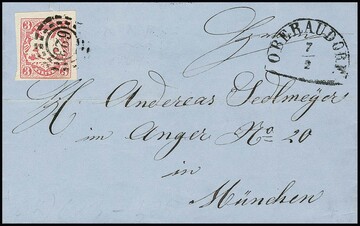 3 3
3 3
OBERAUDORF
7
2
H. Andereas Sedlmeyer
im Anger No 20
in
München